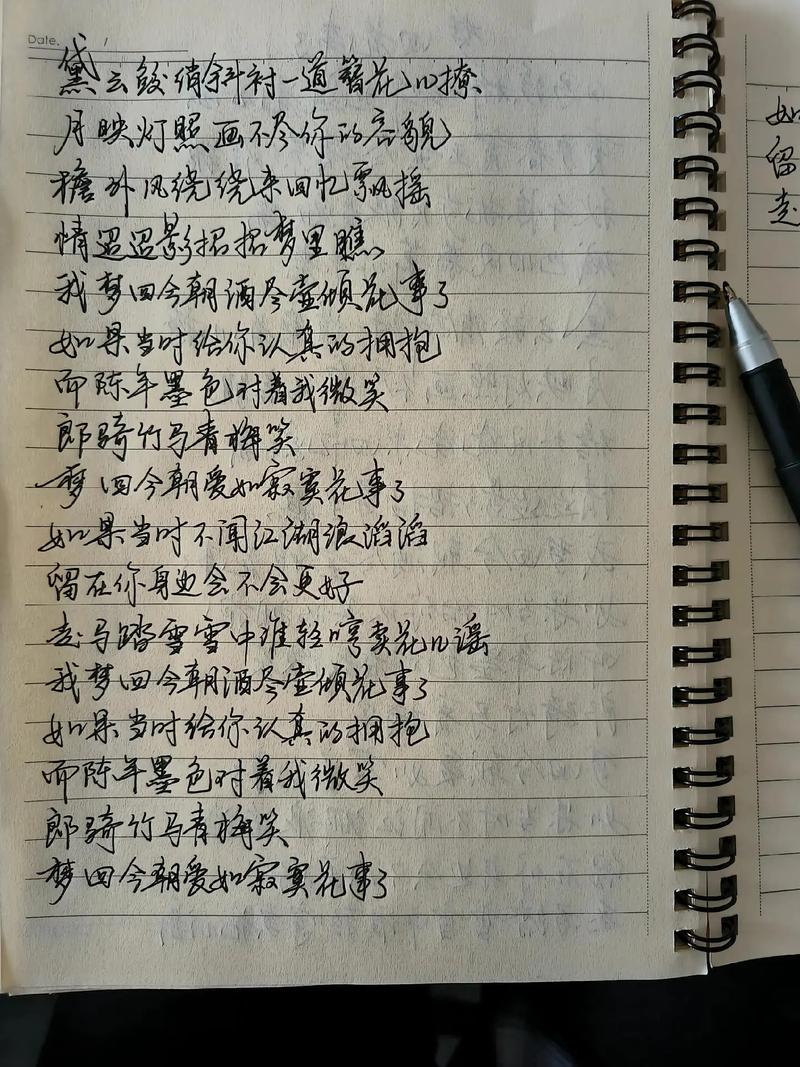 Date. /
黛云鬓俏斜衬一道簪花儿撩
月映灯照画不尽你的容貌
檐外风绕绕来回忆飘摇
情迢迢影招招梦里瞧
我梦回今朝酒尽壶倾花事了
如果当时给你认真的拥抱
而陈年墨色对着我微笑
郎骑竹马青梅笑
梦回今朝爱如寂寞花事了
如果当时不闻江湖浪滔滔
留在你身边会不会更好
走马踏雪雪中谁轻哼卖花儿谣
我梦回今朝酒尽壶倾花事了
如果当时给你认真的拥抱
而陈年墨色对着我微笑
郎骑竹马青梅笑
梦回今朝爱如寂寞花事了
如
留
走